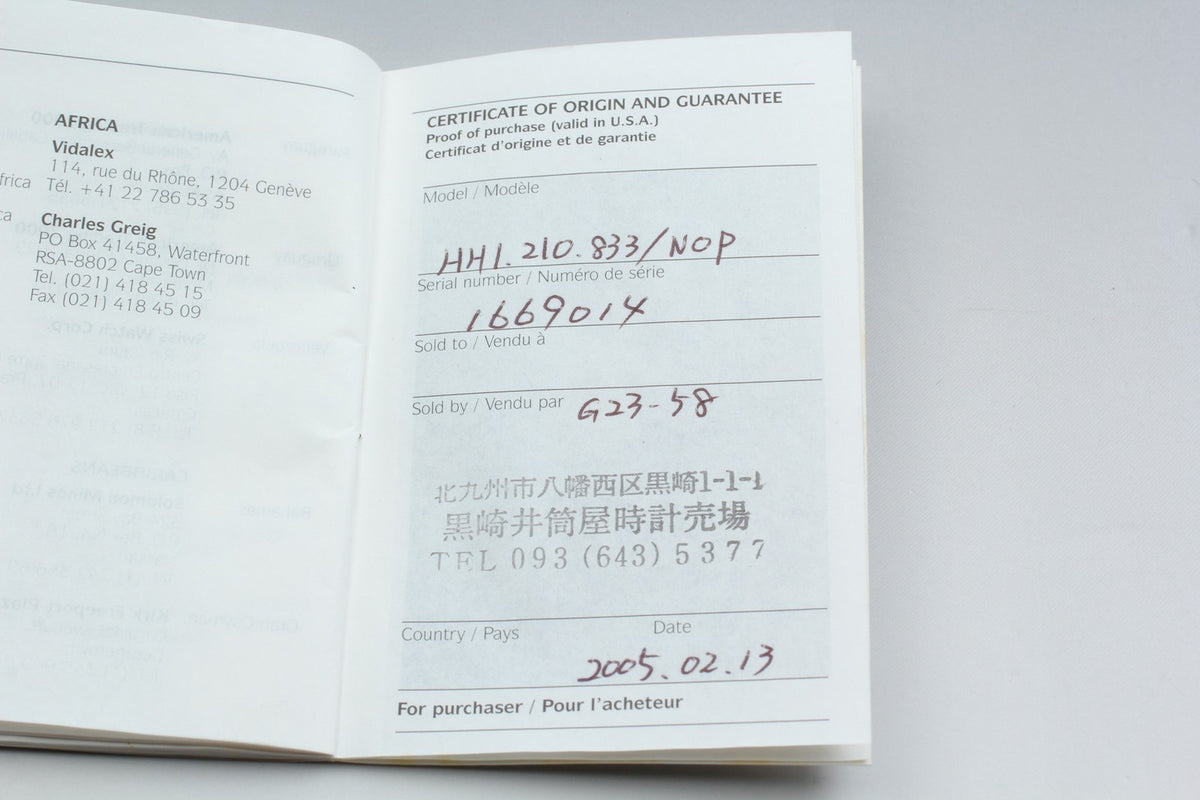 AFRICA
Vidalex
114, rue du Rhône, 1204 Genève
Tél. +41 22 786 53 35
Charles Greig
PO Box 41458, Waterfront
RSA-8802 Cape Town
Tel. (021) 418 45 15
Fax (021) 418 45 09
CERTIFICATE OF ORIGIN AND GUARANTEE
Proof of purchase (valid in U.S.A.)
Certificat d'origine et de garantie
Model / Modèle
HH1.210.833/NOP
Serial number / Numéro de série
1669014
Sold to / Vendu à
Sold by / Vendu par G23-58
北九州市八幡西区黒崎1-1-1
黒崎井筒屋時計売場
TEL 093 (643) 5377
Country / Pays Date
2005.02.13
For purchaser / Pour l'acheteur